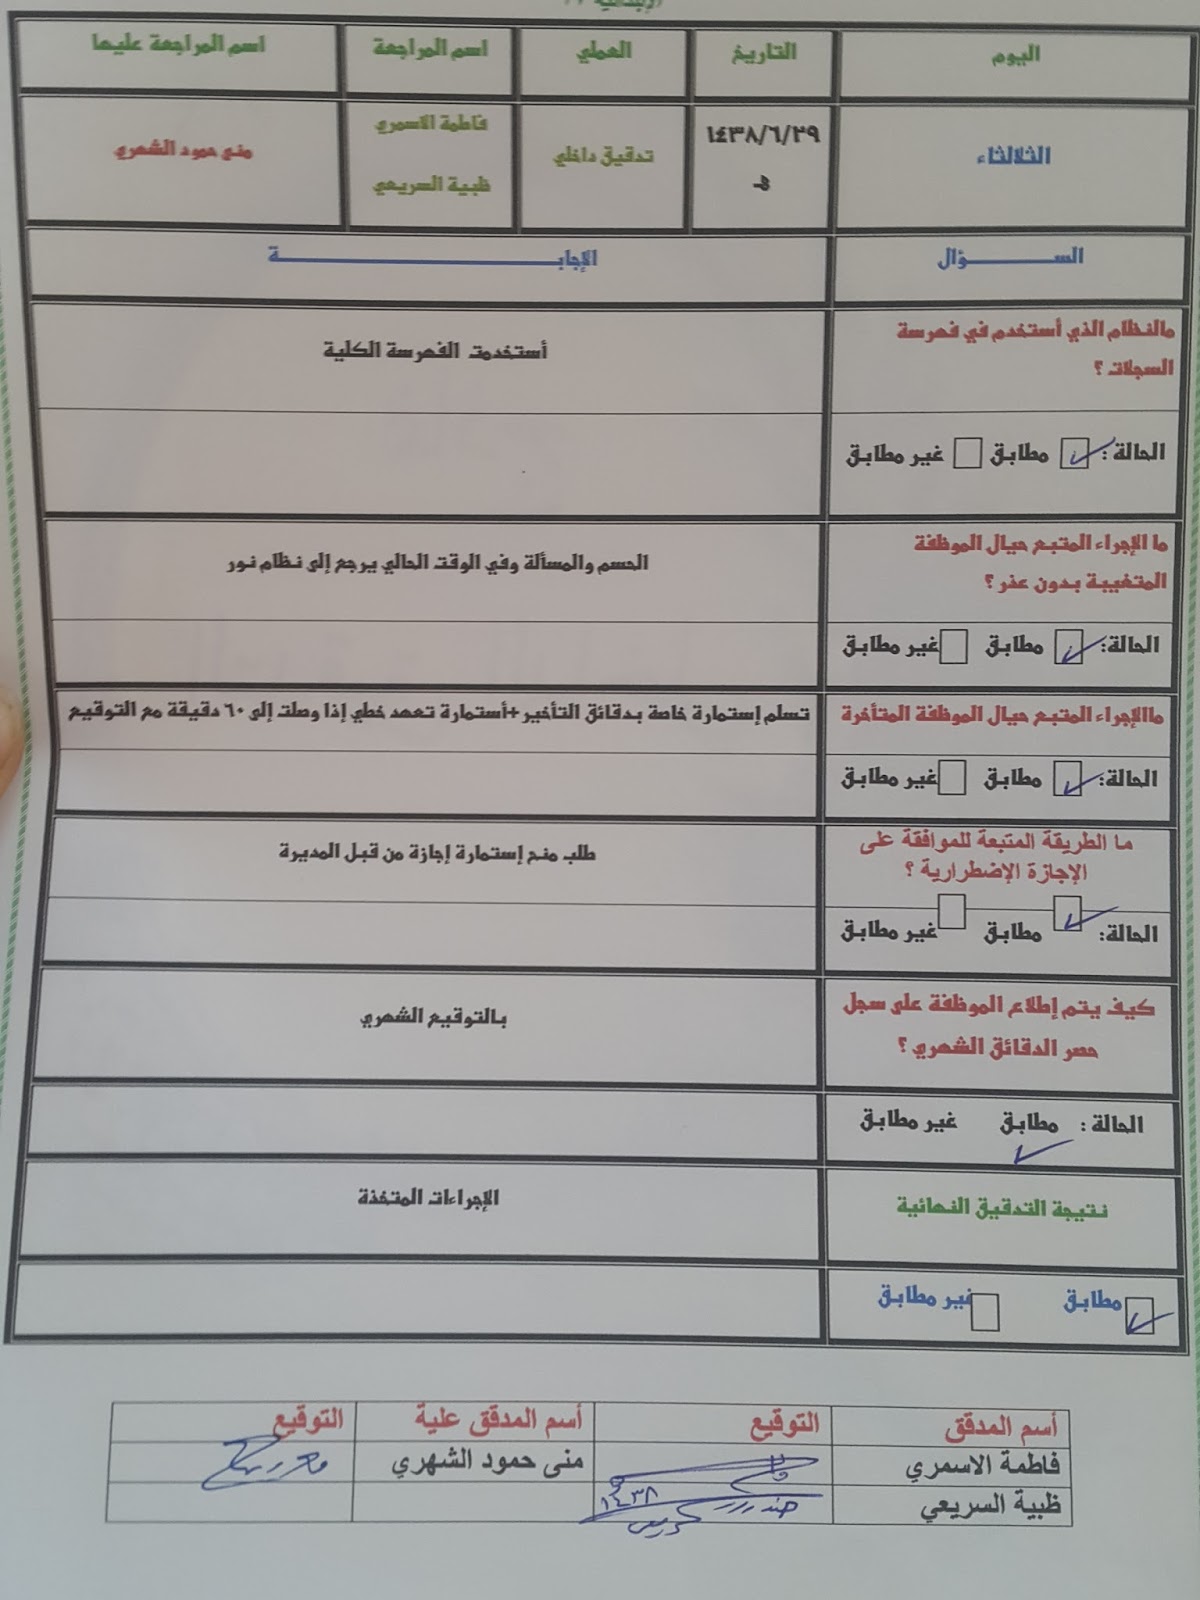 اليوم التاريخ العملي اسم المراجعة اسم المراجعة عليها
الثلاثاء ١٤٣٨/٦/٢٩ تدقيق داخلي فاطمة الاسمري منى حمود الشهري
هـ ظبية السريعي
الســـــــــؤال الإجابـــــــــــــــــــــــــــــــــــــة
مالنظام الذي أستخدم في فهرسة
السجلات ؟
أستخدمت الفهرسة الكلية
الحالة: مطابق غير مطابق
ما الإجراء المتبع حيال الموظفة
المتغيبة بدون عذر؟
الحسم والمسألة وفي الوقت الحالي يرجع إلى نظام نور
الحالة: مطابق غير مطابق
ماالإجراء المتبع حيال الموظفة المتأخرة
تسلم إستمارة خاصة بدقائق التأخير+أستمارة تعهد خطي إذا وصلت إلى ٦٠ دقيقة مع التوقيع
الحالة: مطابق غير مطابق
ما الطريقة المتبعة للموافقة على
الإجازة الإضطرارية ؟
طلب منح إستمارة إجازة من قبل المديرة
الحالة: مطابق غير مطابق
كيف يتم إطلاع الموظفة على سجل
حصر الدقائق الشهري ؟
بالتوقيع الشهري
الحالة : مطابق غير مطابق
نتيجة التدقيق النهائية الإجراءات المتخذة
مطابق غير مطابق
أسم المدقق التوقيع أسم المدقق علية التوقيع
فاطمة الاسمري منى حمود الشهري
ظبية السريعي ١٤٣٨